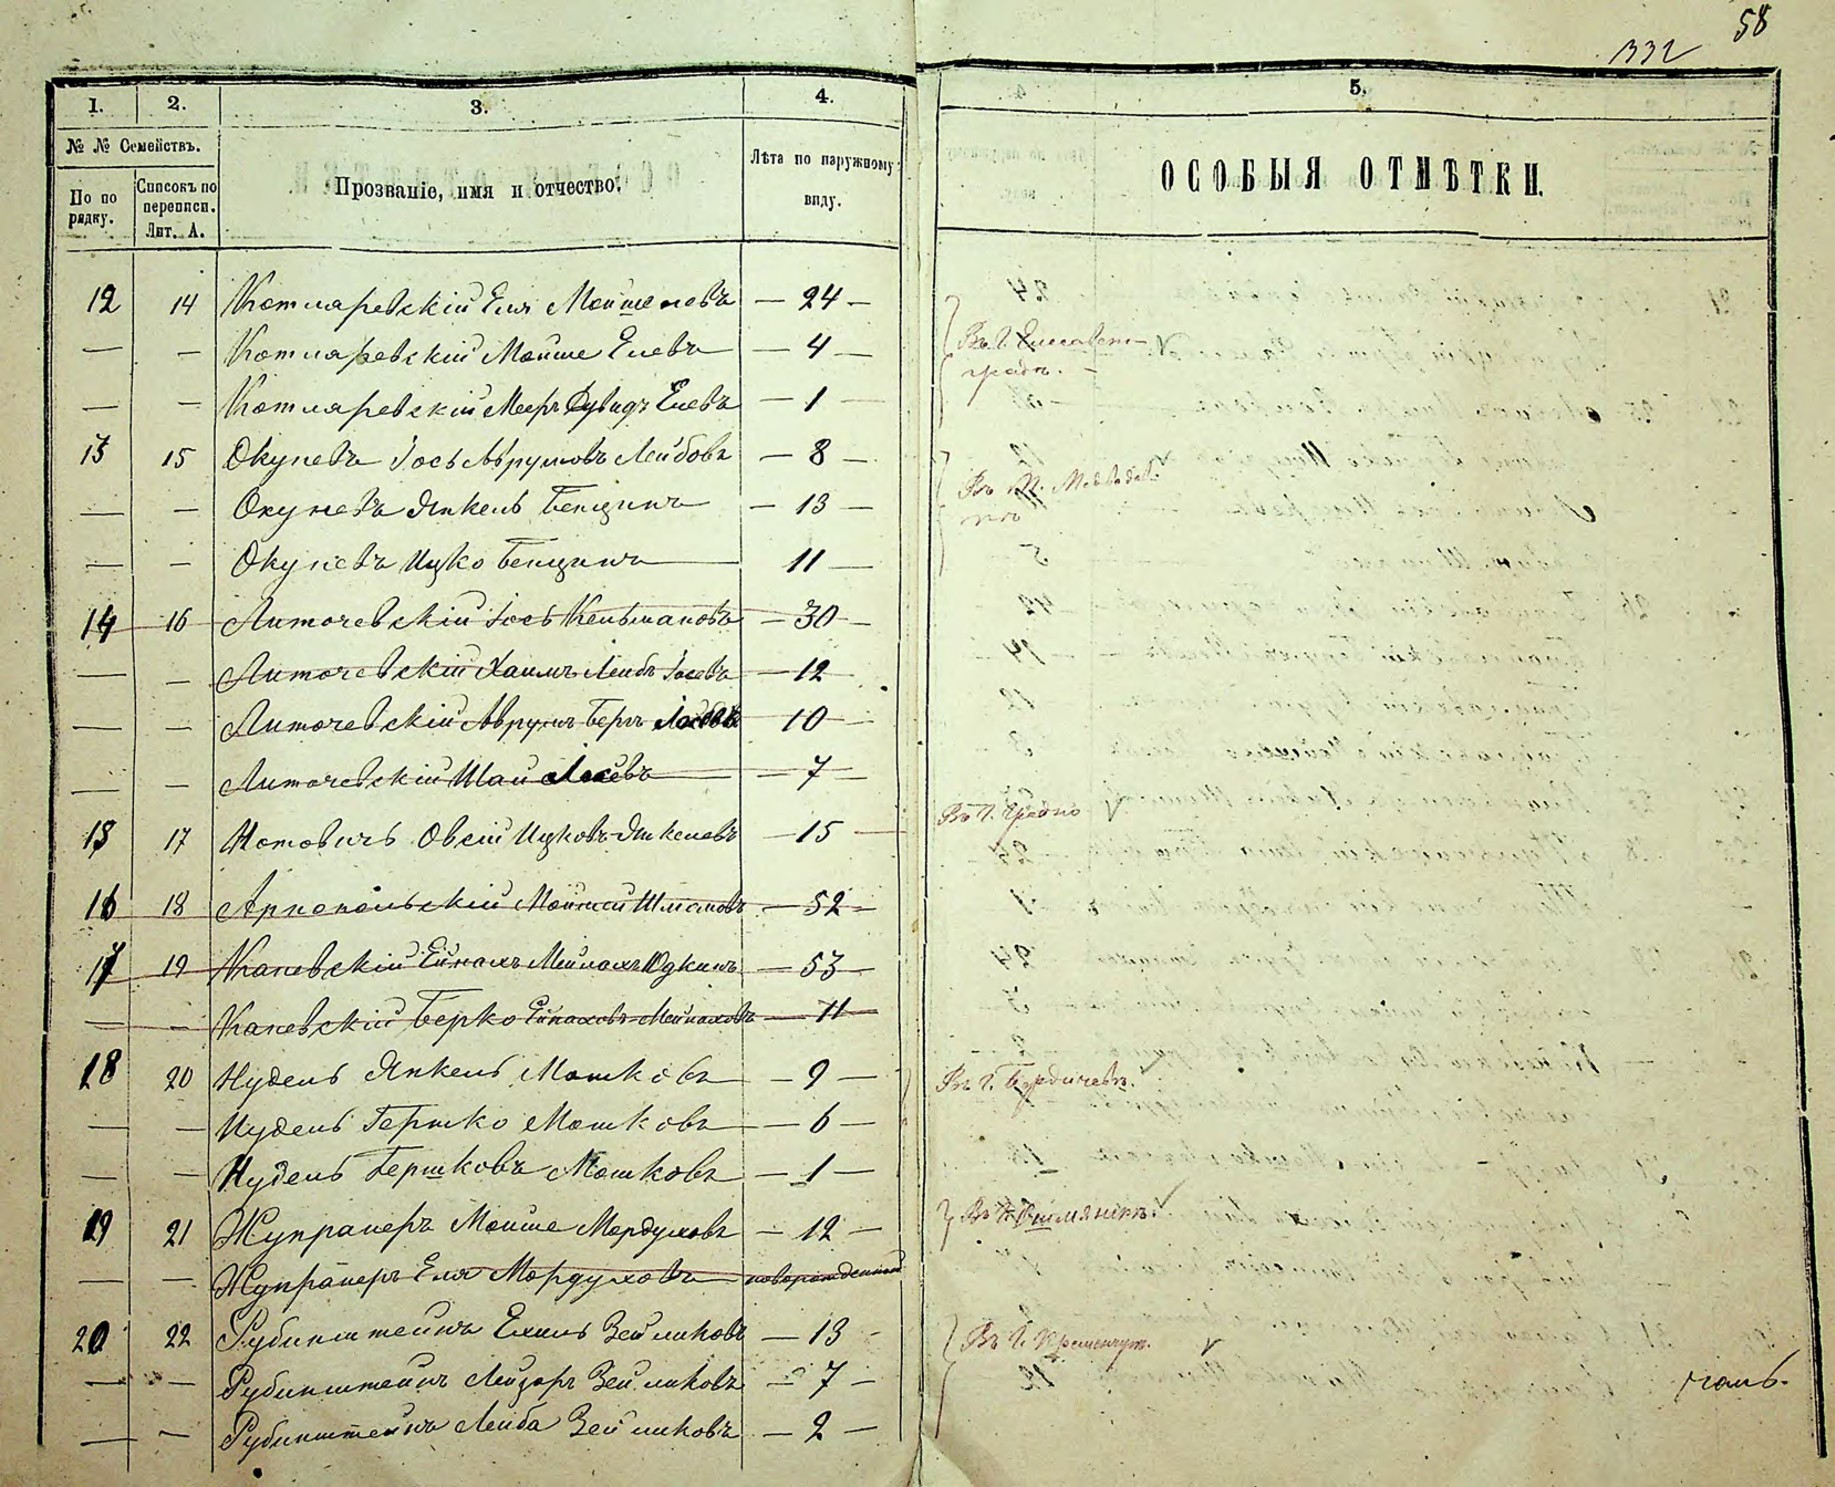 58
332
1. 2. 3. 4. 5.
№ № Семействъ.
По по рядку.
Списокъ по переписи. Лит. А.
Прозваніе, имя и отчество.
Лѣта по наружному виду.
ОСОБЫЯ ОТМѢТКИ.
12 14 Котляревскій Еля Мойшелевъ — 24 —
— — Котляревскій Мойше Елевъ — 4 —
Въ Г. Елисавет-
градѣ. —
— — Котляревскій Мееръ Дувидъ Елевъ — 1 —
13 15 Окуневъ Іось Аврумовъ Лейбовъ — 8 —
Въ М.
— — Окуневъ Янкель Бенцинъ — 13 —
— — Окуневъ Ицко Бенцинъ — 11 —
14 16 Липочевскій Іось Кельмановъ — 30 —
— — Липочевскій Хаимъ Лейбъ Іосевъ — 12
— — Липочевскій Аврумъ Беръ 10 —
— — Липочевскій Шаи — 7 —
15 17 Нотовичъ Овсій Ицковъ-Янкелевъ — 15 — Въ Г. Гродно
16 18 Мошкаи — 52 —
17 19 Каневскій Ейнохъ Мейлахъ Юдкинъ — 53 —
— — Каневскій Берко Ейноховъ-Мейлаховъ — 11 —
18 20 Нудель Янкель Мошковъ — 9 — Въ Г. Бердичевѣ.
— — Нудель Гершко Мошковъ — 6 —
— — Нудель Бершковъ Мошковъ — 1 —
19 21 Жупранеръ Мойше Мордуховъ — 12 —
— — Жупранеръ Еля Мордуховъ новорожденный
20 22 Рубинштейнъ Ехиль Зейликовъ — 13 — Въ Г. Кременчуг.
— — Рубинштейнъ Лейзоръ Зейликовъ — 7 —
— — Рубинштейнъ Лейба Зейликовъ — 2 —